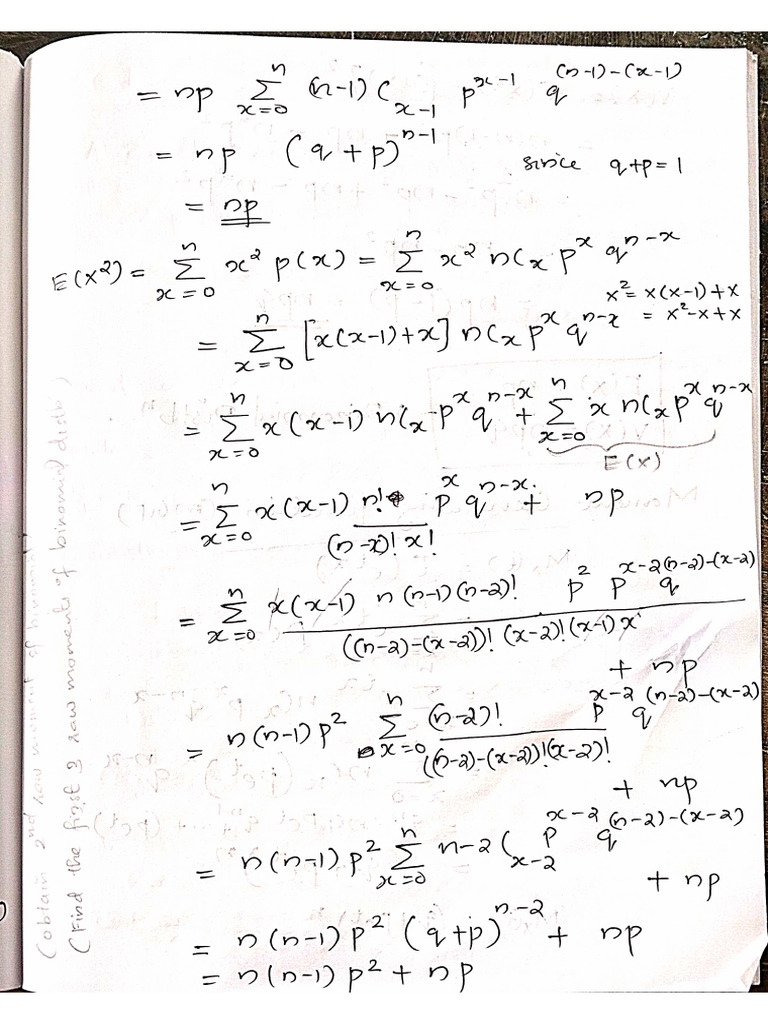 = np Σ_{x=0}^{n} (n-1)C_{x-1} p^{x-1} q^{(n-1)-(x-1)}
= np (q+p)^{n-1} since q+p=1
= np
E(X²) = Σ_{x=0}^{n} x² p(x) = Σ_{x=0}^{n} x² nC_x p^x q^{n-x}
x² = x(x-1)+x
= Σ_{x=0}^{n} [x(x-1)+x] nC_x p^x q^{n-x} = x²-x+x
= Σ_{x=0}^{n} x(x-1) nC_x p^x q^{n-x} + Σ_{x=0}^{n} x nC_x p^x q^{n-x}
E(X)
= Σ_{x=0}^{n} x(x-1) n!/((n-x)! x!) p^x q^{n-x} + np
= Σ_{x=0}^{n} x(x-1) n(n-1)(n-2)! p² p^{x-2} q^{(n-2)-(x-2)} / (((n-2)-(x-2))! (x-2)! (x-1) x)
+ np
= n(n-1)p² Σ_{x=0}^{n} (n-2)! p^{x-2} q^{(n-2)-(x-2)} / (((n-2)-(x-2))!(x-2)!)
+ np
= n(n-1)p² Σ_{x=0}^{n} n-2C_{x-2} p^{x-2} q^{(n-2)-(x-2)}
+ np
= n(n-1)p² (q+p)^{n-2} + np
= n(n-1)p² + np
(obtain 2nd raw moment of binomial)
(Find the first 3 raw moments of binomial distb)